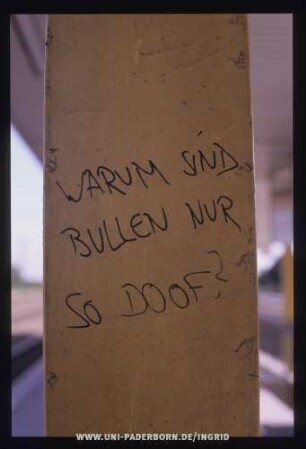 WARUM SIND
BULLEN NUR
SO DOOF?
WWW.UNI-PADERBORN.DE/INGRID